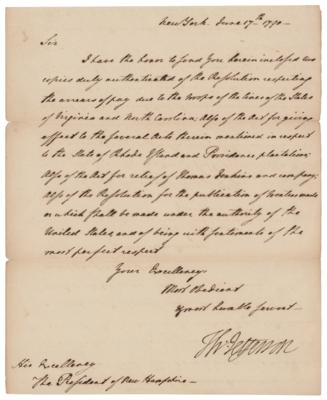 New York. June 17th 1790—
Sir
I have the honor to send you herein inclosed two
copies duly authenticated of the Resolution respecting
the arrears of pay due to the troops of the lines of the States
of Virginia and North Carolina; Also of the Act for giving
effect to the several Acts therein mentioned in respect
to the State of Rhode Island and Providence plantation;
Also of the Act for relief of Thomas Jenkins and company;
Also of the Resolution for the publication of
which shall be made under the authority of the
United States, and of being with sentiments of the
most perfect respect
Your Excellency's
Most obedient
& most humble servant—
Th: Jefferson
His Excellency
The President of New Hampshire—